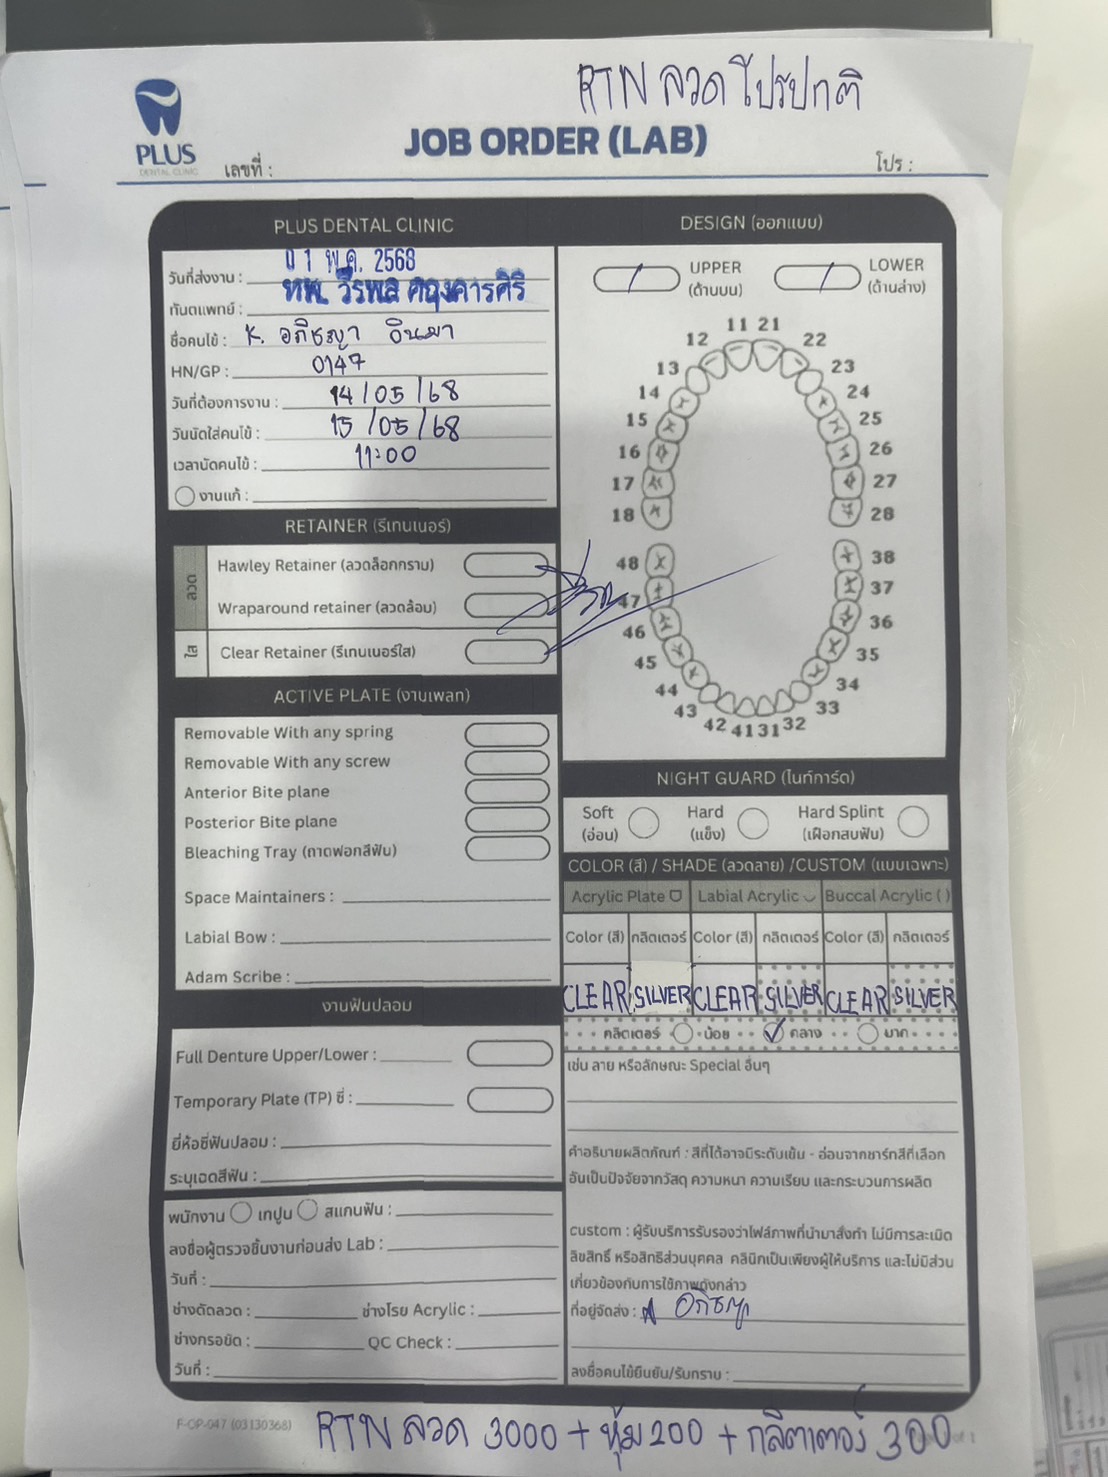 RTN ลวด โปรปกติ
PLUS
DENTAL CLINIC
JOB ORDER (LAB)
เลขที่ :
โปร :
PLUS DENTAL CLINIC
วันที่ส่งงาน : 01 พ.ค. 2568
ทันตแพทย์ : ทพ. วีรพล
ชื่อคนไข้ : K. อภิชญา อินมา
HN/GP : 0147
วันที่ต้องการงาน : 14/05/68
วันนัดใส่คนไข้ : 15/05/68
เวลานัดคนไข้ : 11:00
งานแก้ :
RETAINER (รีเทนเนอร์)
ลวด
Hawley Retainer (ลวดล็อกกราม)
Wraparound retainer (ลวดล้อม)
ใส
Clear Retainer (รีเทนเนอร์ใส)
ACTIVE PLATE (งานเพลท)
Removable With any spring
Removable With any screw
Anterior Bite plane
Posterior Bite plane
Bleaching Tray (ถาดฟอกสีฟัน)
Space Maintainers :
Labial Bow :
Adam Scribe :
งานฟันปลอม
Full Denture Upper/Lower :
Temporary Plate (TP) ซี่ :
ยี่ห้อซี่ฟันปลอม :
ระบุเฉดสีฟัน :
พนักงาน เทปูน สแกนฟัน :
ลงชื่อผู้ตรวจชิ้นงานก่อนส่ง Lab :
วันที่ :
ช่างดัดลวด : ช่างโรย Acrylic :
ช่างกรอขัด : QC Check :
วันที่ :
DESIGN (ออกแบบ)
UPPER
(ด้านบน)
LOWER
(ด้านล่าง)
11 21
12 22
13 23
14 24
15 25
16 26
17 27
18 28
48 38
47 37
46 36
45 35
44 34
43 33
42 41 31 32
NIGHT GUARD (ไนท์การ์ด)
Soft
(อ่อน)
Hard
(แข็ง)
Hard Splint
(เฝือกสบฟัน)
COLOR (สี) / SHADE (ลวดลาย) /CUSTOM (แบบเฉพาะ)
Acrylic Plate Labial Acrylic Buccal Acrylic ( )
Color (สี) กลิตเตอร์ Color (สี) กลิตเตอร์ Color (สี) กลิตเตอร์
CLEAR SILVER CLEAR SILVER CLEAR SILVER
กลิตเตอร์ น้อย ✓ กลาง มาก
เช่น ลาย หรือลักษณะ Special อื่นๆ
คำอธิบายผลิตภัณฑ์ : สีที่ได้อาจมีระดับเข้ม - อ่อนจากชาร์ทสีที่เลือก
อันเป็นปัจจัยจากวัสดุ ความหนา ความเรียบ และกระบวนการผลิต
custom : ผู้รับบริการรับรองว่าไฟล์ภาพที่นำมาสั่งทำ ไม่มีการละเมิด
ลิขสิทธิ์ หรือสิทธิส่วนบุคคล คลินิกเป็นเพียงผู้ให้บริการ และไม่มีส่วน
เกี่ยวข้องกับการใช้ภาพดังกล่าว
ที่อยู่จัดส่ง : อภิชญา
ลงชื่อคนไข้ยืนยัน/รับทราบ :
F-OP-047 (03130368)
RTN ลวด 3000 + หุ้ม 200 + กลิตเตอร์ 300